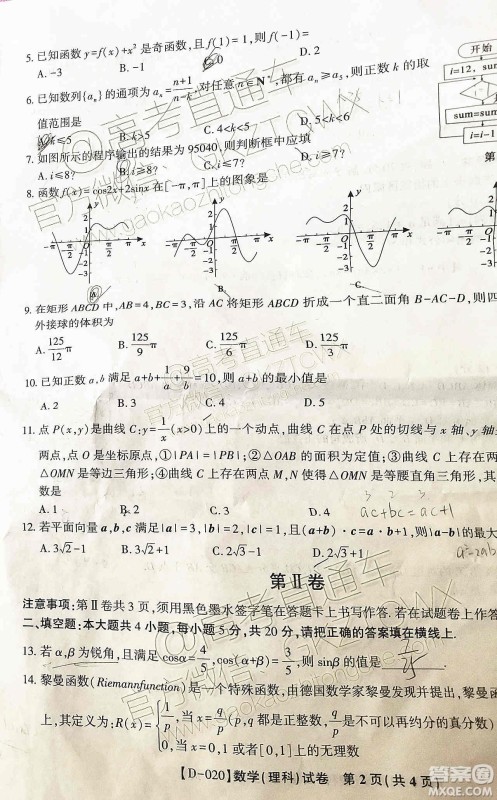 5. 已知函数 y=f(x)+x² 是奇函数,且 f(1)=1,则 f(-1)=
A. -3 B. -1 C. 0 D. 2
6. 已知数列{aₙ}的通项为 aₙ=(n+1)/(n-k),对任意 n∈N*,都有 aₙ≥a₅,则正数 k 的取
值范围是
A. k≤5 B. k>5 C. 4<k<5 D. 5<k<6
7. 如图所示的程序输出的结果为 95040,则判断框中应填
A. i≤8? B. i≥8? C. i≤7? D. i≥7?
8. 函数 f(x)=cos2x+2sinx 在[-π,π]上的图象是
开始
i=12, sum
sum=sum
i=i-1
9. 在矩形 ABCD 中,AB=4,BC=3,沿 AC 将矩形 ABCD 折成一个直二面角 B-AC-D,则四
外接球的体积为
A. 125/12 π B. 125/9 π C. 125/6 π D. 125/3 π
10. 已知正数 a,b 满足 a+b+1/a+9/b=10,则 a+b 的最小值是
A. 2 B. 3 C. 4 D. 5
11. 点 P(x,y)是曲线 C:y=1/x(x>0)上的一个动点,曲线 C 在点 P 处的切线与 x 轴、y 轴
两点,点 O 是坐标原点,①|PA|=|PB|;②△OAB 的面积为定值;③曲线 C 上存在两
△OMN 是等边三角形;④曲线 C 上存在两点 M,N 使得△OMN 是等腰直角三角形,
数是
A. 1 B. 2 C. 3 D. 4
ac+bc=ac+1
12. 若平面向量 a,b,c 满足|a|=3,|b|=2,|c|=1,且(a+b)·c=a·b+1,则|a-b|的最大
A. 3√2-1 B. 3√2+1 C. 2√3-1 D. 2√3+1
a²-2ab
第Ⅱ卷
注意事项:第Ⅱ卷共 3 页,须用黑色墨水签字笔在答题卡上书写作答.若在试题卷上作答
二、填空题:本大题共 4 小题,每小题 5 分,共 20 分,请把正确的答案填在横线上.
13. 若 α,β 为锐角,且满足 cosα=4/5,cos(α+β)=3/5,则 sinβ 的值是
14. 黎曼函数(Riemannfunction)是一个特殊函数,由德国数学家黎曼发现并提出,黎曼
上,其定义为:R(x)={1/p,当 x=q/p(p,q 都是正整数,q/p 是不可以再约分的真分数)
0,当 x=0,1 或者(0,1)上的无理数
【D-020】数学(理科)试卷 第 2 页(共 4 页)
@高考直通车
官方微信:GKZTCWX
www.gaokaozhitongche.com
答案圈
MXQE.COM